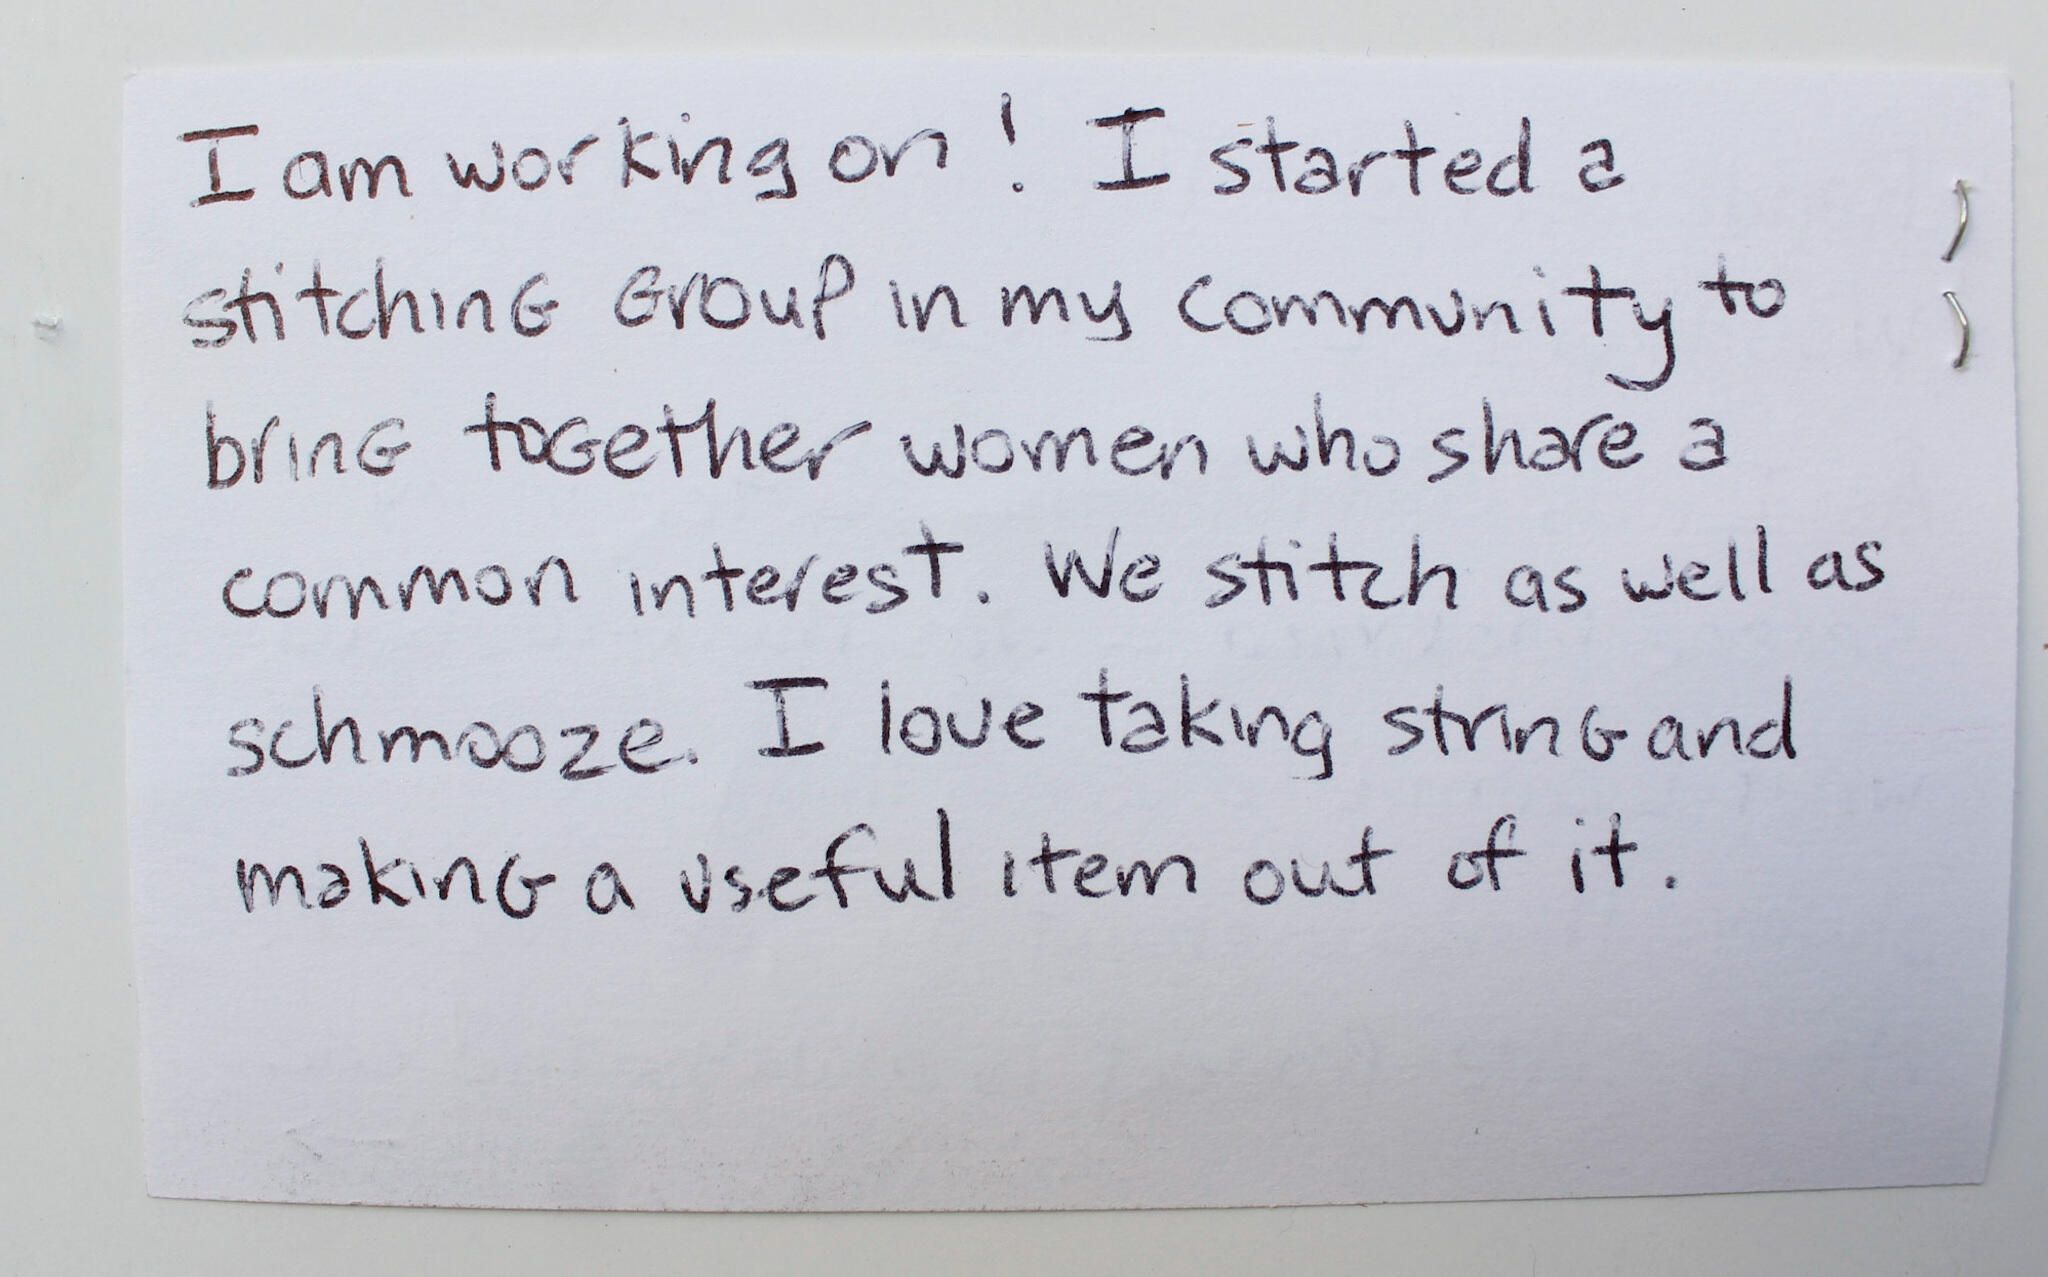 I am working on! I started a
stitching Group in my community to
bring together women who share a
common interest. We stitch as well as
schmooze. I love taking string and
making a useful item out of it.